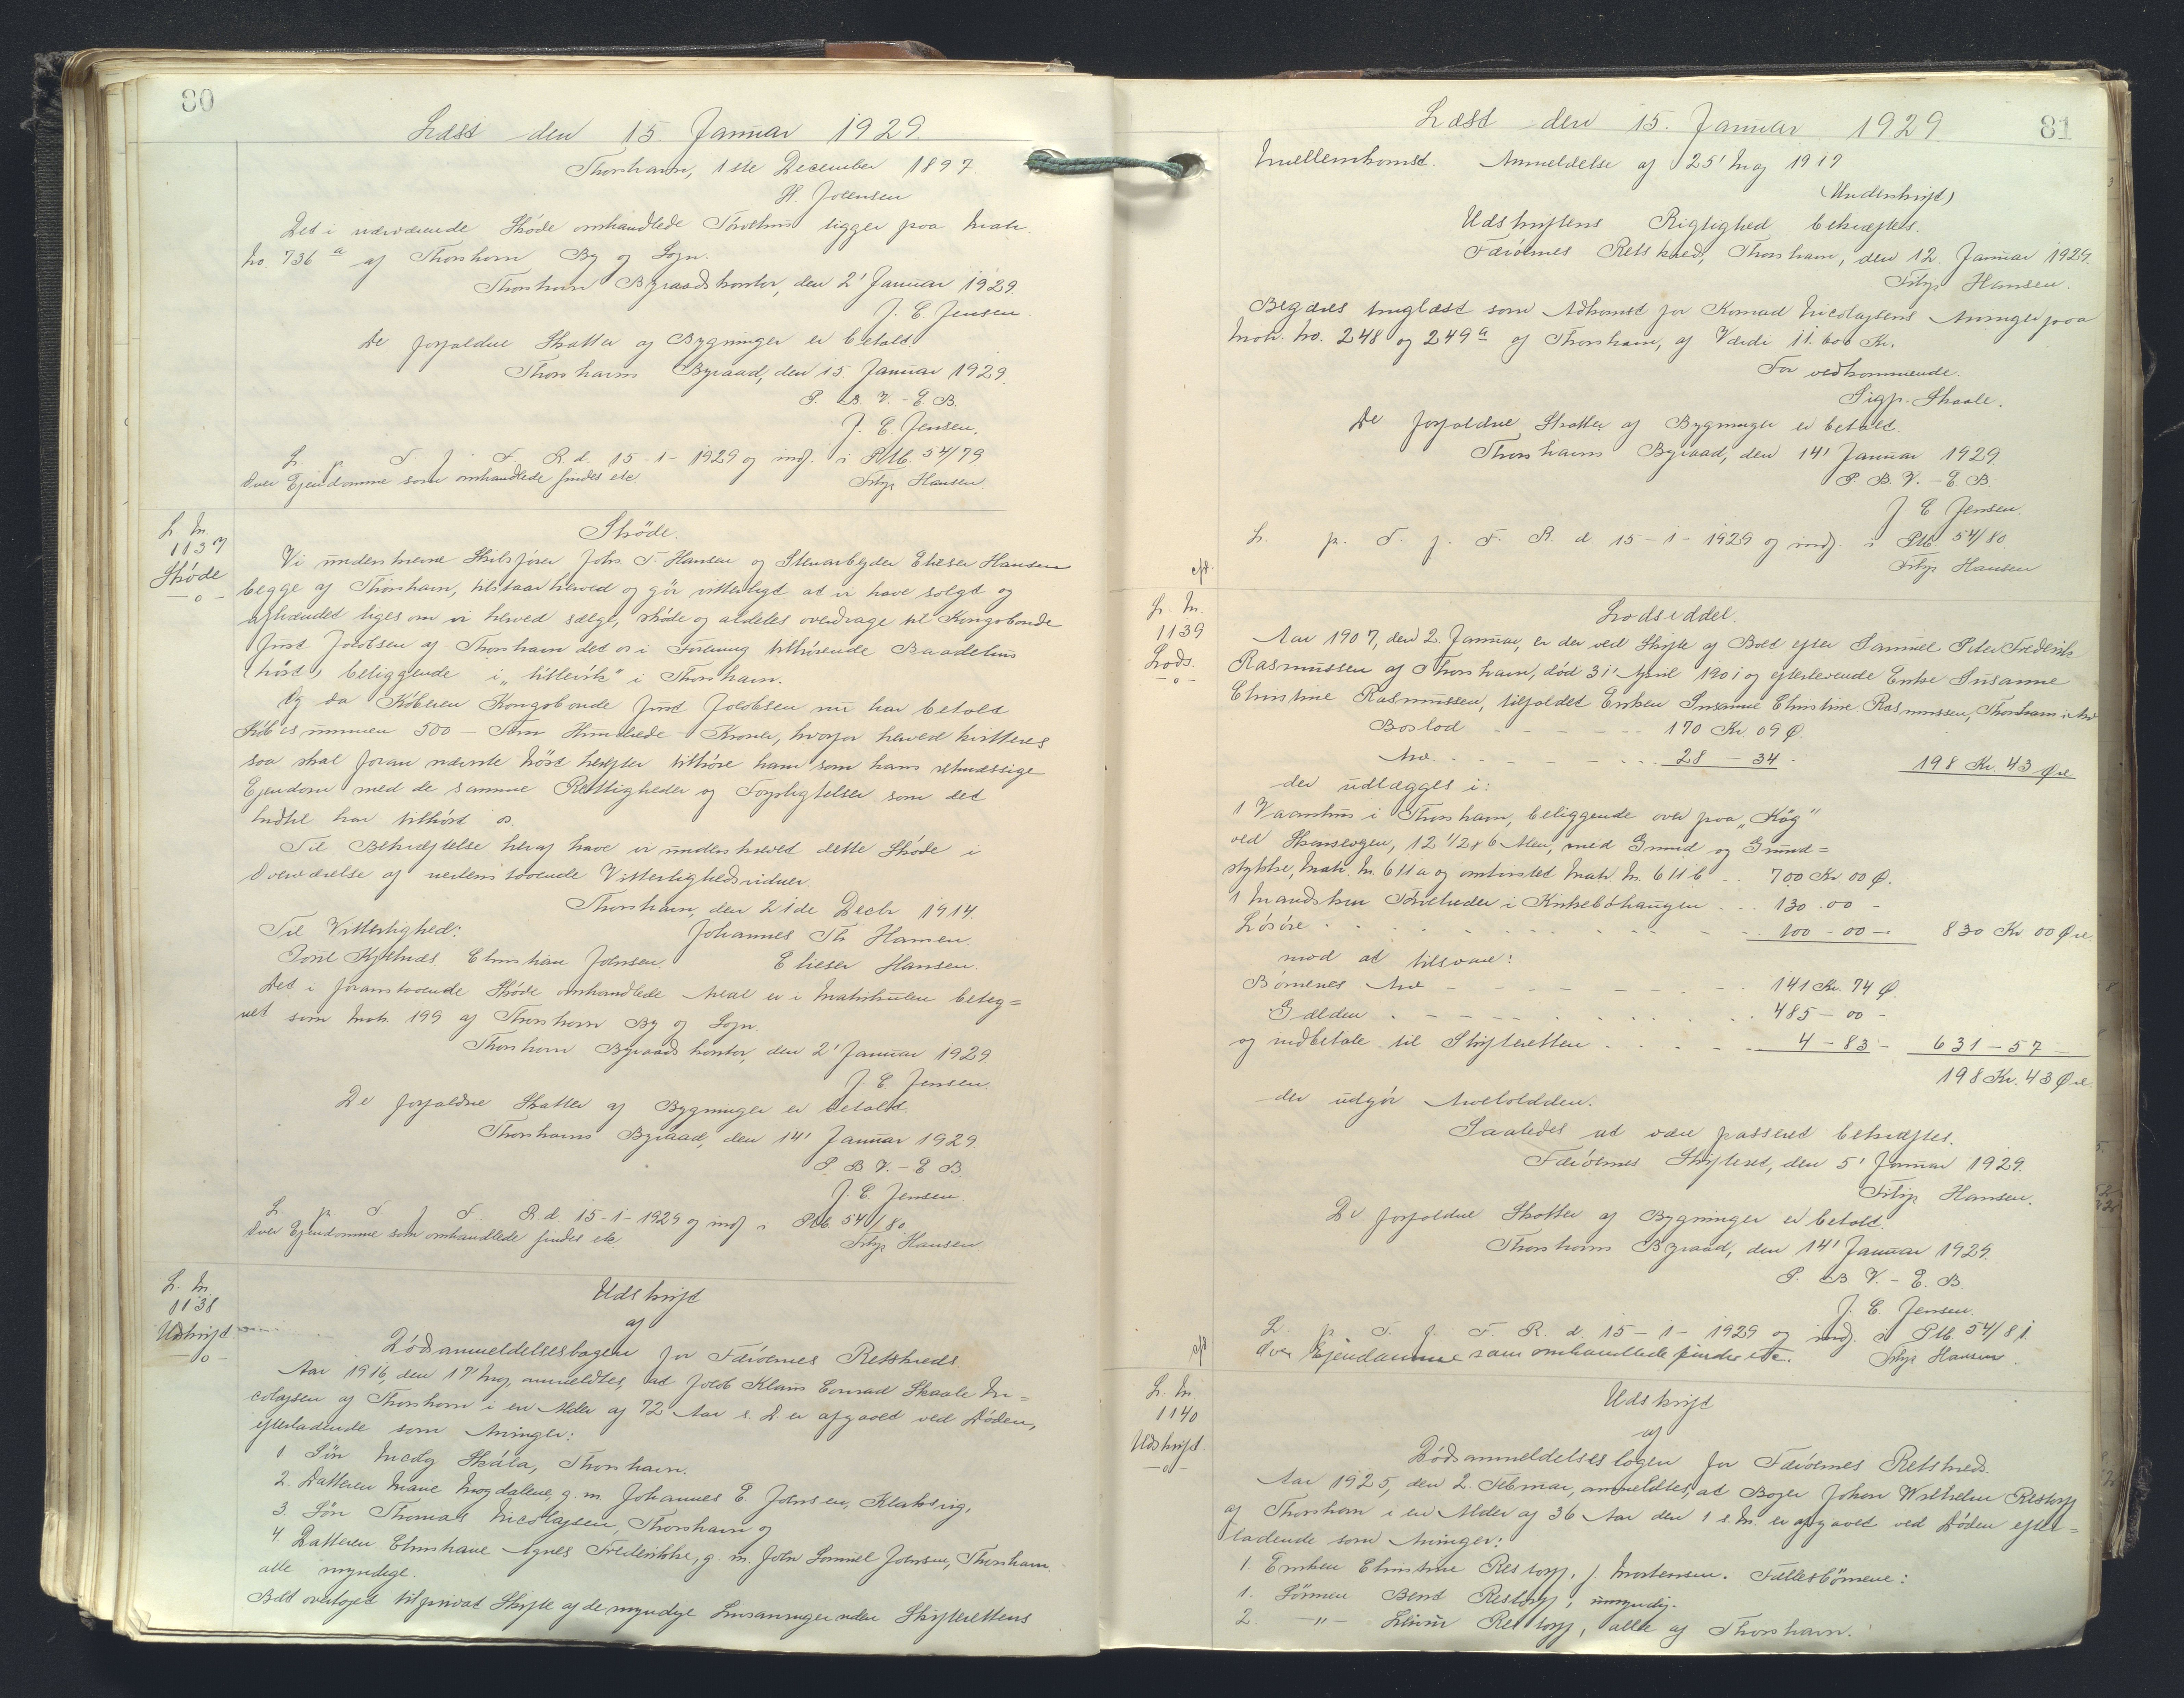 80
Læst den 15. Januar 1929.
Thorshavn, 1ste December 1897.
H. Joensen
Det i nærværende Skøde omhandlede Tørvehus ligger paa Matr.
No. 736 a af Thorshavn By og Sogn.
Thorshavn Byraadskontor, den 2' Januar 1929
J. C. Jensen.
De forfaldne Skatter af Bygninger er betalt
Thorshavns Byraad, den 15. Januar 1929.
P. B. V. - E. B.
J. C. Jensen.
L. p. T. f. F. R. d. 15-1-1929 og indf. i Ptb. 54/79
Over Ejendomme som omhandlede findes etc.
Filip Hansen.
L. Nr.
1137
Skøde
-o-
Skøde.
Vi underskrevne Skibsfører Johs. T. Hansen og Stenarbejder Elieser Hansen
begge af Thorshavn, tilstaar herved og gør vitterligt at vi have solgt og
afhændet ligesom vi herved sælge, skøde og aldeles overdrage til Kongsbonde
Just Jacobsen af Thorshavn det os i Forening tilhørende Baadehus
(nöst) beliggende i "Vittevik" i Thorshavn.
Og da Køberen Kongsbonde Just Jacobsen nu har betalt
Købesummen 500 - Fem Hundrede - Kroner, hvorfor herved kvitteres
saa skal foran nævnte Nöst herefter tilhøre ham som hans retmæssige
Ejendom med de samme Rettigheder og Forpligtelser som det
hidtil har tilhørt os.
Til Bekræftelse heraf have vi underskrevet dette Skøde i
Overværelse af nedenstaaende Vitterlighedsvidner.
Thorshavn, den 21de Decbr 1914.
Til Vitterlighed:
Johannes Th Hansen.
Poul Kjelnæs. Christian Joensen.
Elieser Hansen.
Det i foranstaaende Skøde omhandlede Areal er i Matrikulen beteg=
net som Matr. 199 af Thorshavn By og Sogn.
Thorshavn Byraads kontor, den 2' Januar 1929
J. C. Jensen.
De forfaldne Skatter af Bygninger er betalt.
Thorshavns Byraad, den 14' Januar 1929
P. B. V. - E. B.
J. C. Jensen.
L. p. T. f. F. R. d. 15-1-1929 og indf. i Ptb 54/80
Over Ejendomme som omhandlede findes etc
Filip Hansen
L. Nr.
1138
Udskrift.
-o-
Udskrift
af
Dødsanmeldelsesbogen for Færøernes Retskreds.
Aar 1916, den 17' Maj, anmeldtes, at Jacob Klaus Conrad Skaale Ni=
colajsen af Thorshavn i en Alder af 72 Aar s. D. er afgaaet ved Døden,
efterladende som Arvinger:
1 Søn Nicolaj Skála, Thorshavn.
2. Datteren Marie Magdalene, g. m. Johannes E. Joensen, Klaksvig,
3. Søn Thomas Nicolajsen, Thorshavn og
4 Datteren Christiane Agnes Frederikke, g. m. John Samuel Joensen, Thorshavn.
alle myndige.
Boet overtoges til privat Skifte af de myndige Livsarvinger uden Skifterettens
81
Læst den 15. Januar 1929.
Mellemkomst. Anmeldelse af 25' Maj 1917
(Underskrift)
Udskriftens Rigtighed bekræftes.
Færøernes Retskreds, Thorshavn, den 12. Januar 1929.
Filip Hansen.
Begæres tinglæst som Adkomst for Konrad Nicolajsens Arvinger paa
Matr. No. 248 og 249 a af Thorshavn, af Værdi 11.600 Kr.
For vedkommende.
Sigf. Skaale.
De forfaldne Skatter af Bygninger er betalt.
Thorshavns Byraad, den 14' Januar 1929.
P. B. V. - E. B.
J. C. Jensen.
L. p. T. f. F. R. d. 15-1-1929 og indf. i Ptb 54/80
Filip Hansen
L. Nr.
1139
Lods.
-o-
Lodseddel.
Aar 1907, den 2. Januar, er der ved Skifte af Boet efter Samuel Peter Frederik
Rasmussen af Thorshavn, død 31' April 1901 og efterlevende Enke Susanne
Christine Rasmussen, tilfaldet Enken Susanne Christine Rasmussen, Thorshavn i Arv
Boslod - - - - 170 Kr. 09 Ø.
Arv - - - - 28 - 34. 198 Kr. 43 Øre
der udlægges i:
1 Vaanhus i Thorshavn, beliggende over paa "Kág"
ved Skansevejen, 12 1/2 x 6 Alen, med Grund og Grund=
stykke, Matr. Nr. 611a og omtvistet Matr. Nr. 611b . . 700 Kr. 00 Ø.
1 i Kirkebøhaugen - - - 130.00 -
Løsøre - - - - 100 - 00 - 830 Kr 00 Øre.
mod at tilsvare:
Børnenes Arv - - - - 141 Kr. 74 Ø.
Gælden - - - - 485 - 00 -
og indbetale til Skifteretten - - - - 4 - 83 - 631 - 57
198 Kr. 43 Øre.
der udgør Arvelodden.
Saaledes at være passeret bekræftes.
Færøernes Skifteret, den 5' Januar 1929.
Filip Hansen.
De forfaldne Skatter af Bygninger er betalt.
Thorshavns Byraad, den 14' Januar 1929.
P. B. V. - E. B.
J. C. Jensen.
L. p. T. f. F. R. d. 15-1-1929 og indf. i Ptb 54/81
Over Ejendomme som omhandlede findes etc.
Filip Hansen.
L. Nr.
1140
Udskrift.
-o-
Udskrift
af
Dødsanmeldelsesbogen for Færøernes Retskreds.
Aar 1925, den 2. Februar, anmeldtes, at Bager Johan Wilhelm Restorff
af Thorshavn i en Alder af 36 Aar den 1 s. M. er afgaaet ved Døden efter=
ladende som Arvinger:
1. Enken Christine Restorff, f. Mortensen. Fællesbørnene:
1. Sønnen Bent Restorff, umyndig.
2. -"- Restorff, alle af Thorshavn.